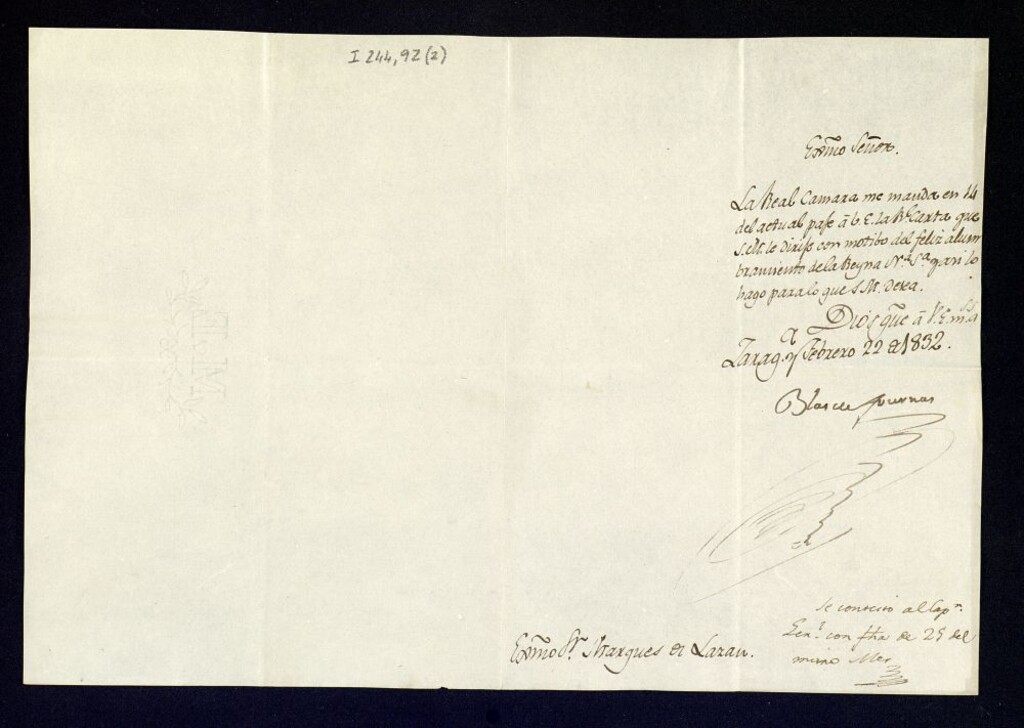 I 244,92 (2)
Exmo Señor.
La Real Camara me manda en 14
del actual pase â V. E. la Rl. Carta que
S. M. le dirije con motibo del feliz alum
bramiento de la Reyna Nra. Sra. y asi lo
hago para lo que S. M. desea.
Dios gue â V. E. ms as
Zarag.a y Febrero 22 de 1832.
Blas de Fournas
Exmo Sr. Marques de Lazan.
Se contestó al Cap.n
Gen.l con fha de 25 del
mismo Mes